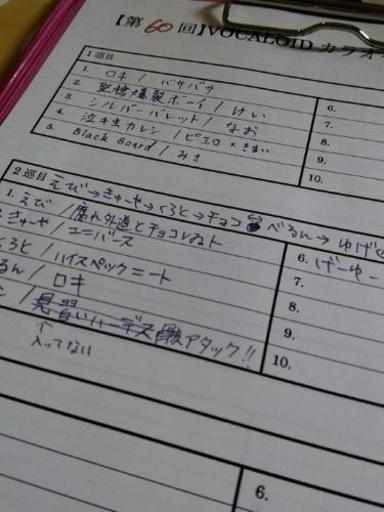 【第60回】VOCALOID カラオ
1巡目
1. ロキ / バサバサ
2. 聖槍爆裂ボーイ / けい
3. シルバーバレット / なお
4. 泣キ虫カレシ / ピエロ×きまい
5. Black Board / みさ
6.
7.
8.
9.
10.
2巡目 えび→きゅーや→くろと→チョコ べるん→ゆげ
1. えび / 腐れ外道とチョコレゐト
きゅーや / ユニバース
くろと / ハイスペックニート
るん / ロキ
/ 見習いハーデス アタック!!
↑
入ってない
6. げーゆー
7.
8.
9.
10.
6.